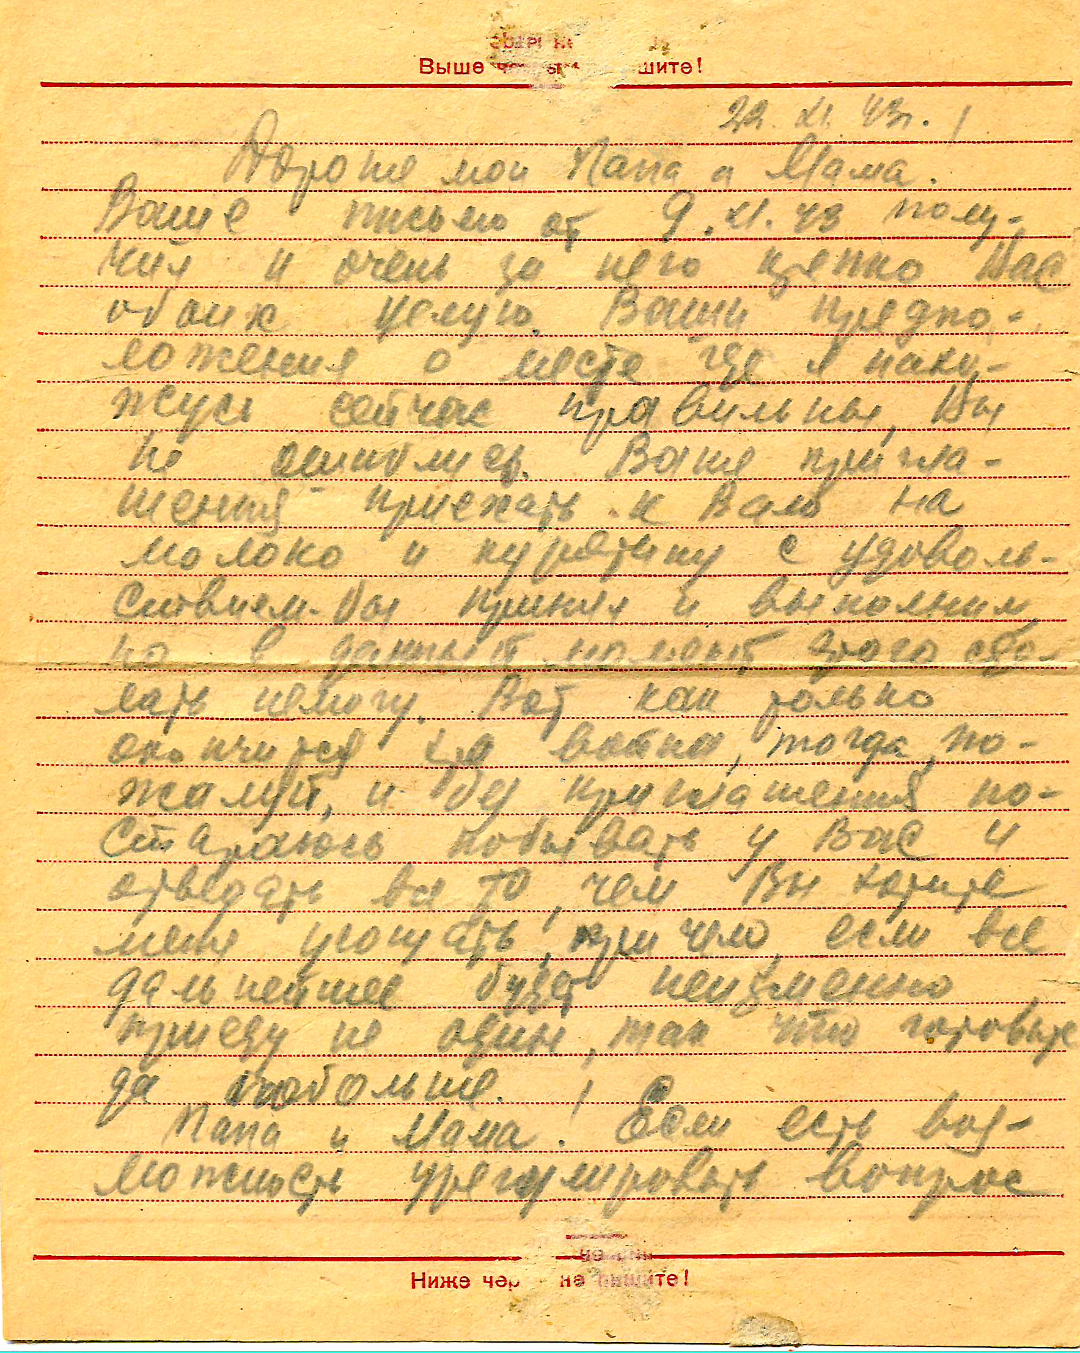 Выше че шите!
22. XI. 43г.
Дорогие мои Папа и Мама.
Ваше письмо от 9.XI.43 полу-
чил и очень за него крепко Вас
обоих целую. Ваши предпо-
ложения о месте где я нахо-
жусь сейчас правильны, Вы
не ошиблись. Ваше пригла-
шения приехать к Вам на
молоко и курятину с удоволь-
ствием бы принял и выполнил,
но в данный момент этого сде-
лать немогу. Вот как только
окончится эта война, тогда, по-
жалуй, и без приглашения по-
стараюсь побывать у Вас и
отведать все то, чем Вы хотите
меня угощать, при чем, если все
дальнейшее будет неизменно
приеду не один, так что готовьте
да побольше.
Папа и Мама! Если есть воз-
можность урегулировать вопрос
Ниже чер не пишите!